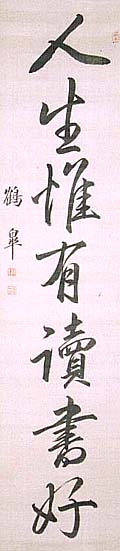 人生惟有讀書好
鶴皐